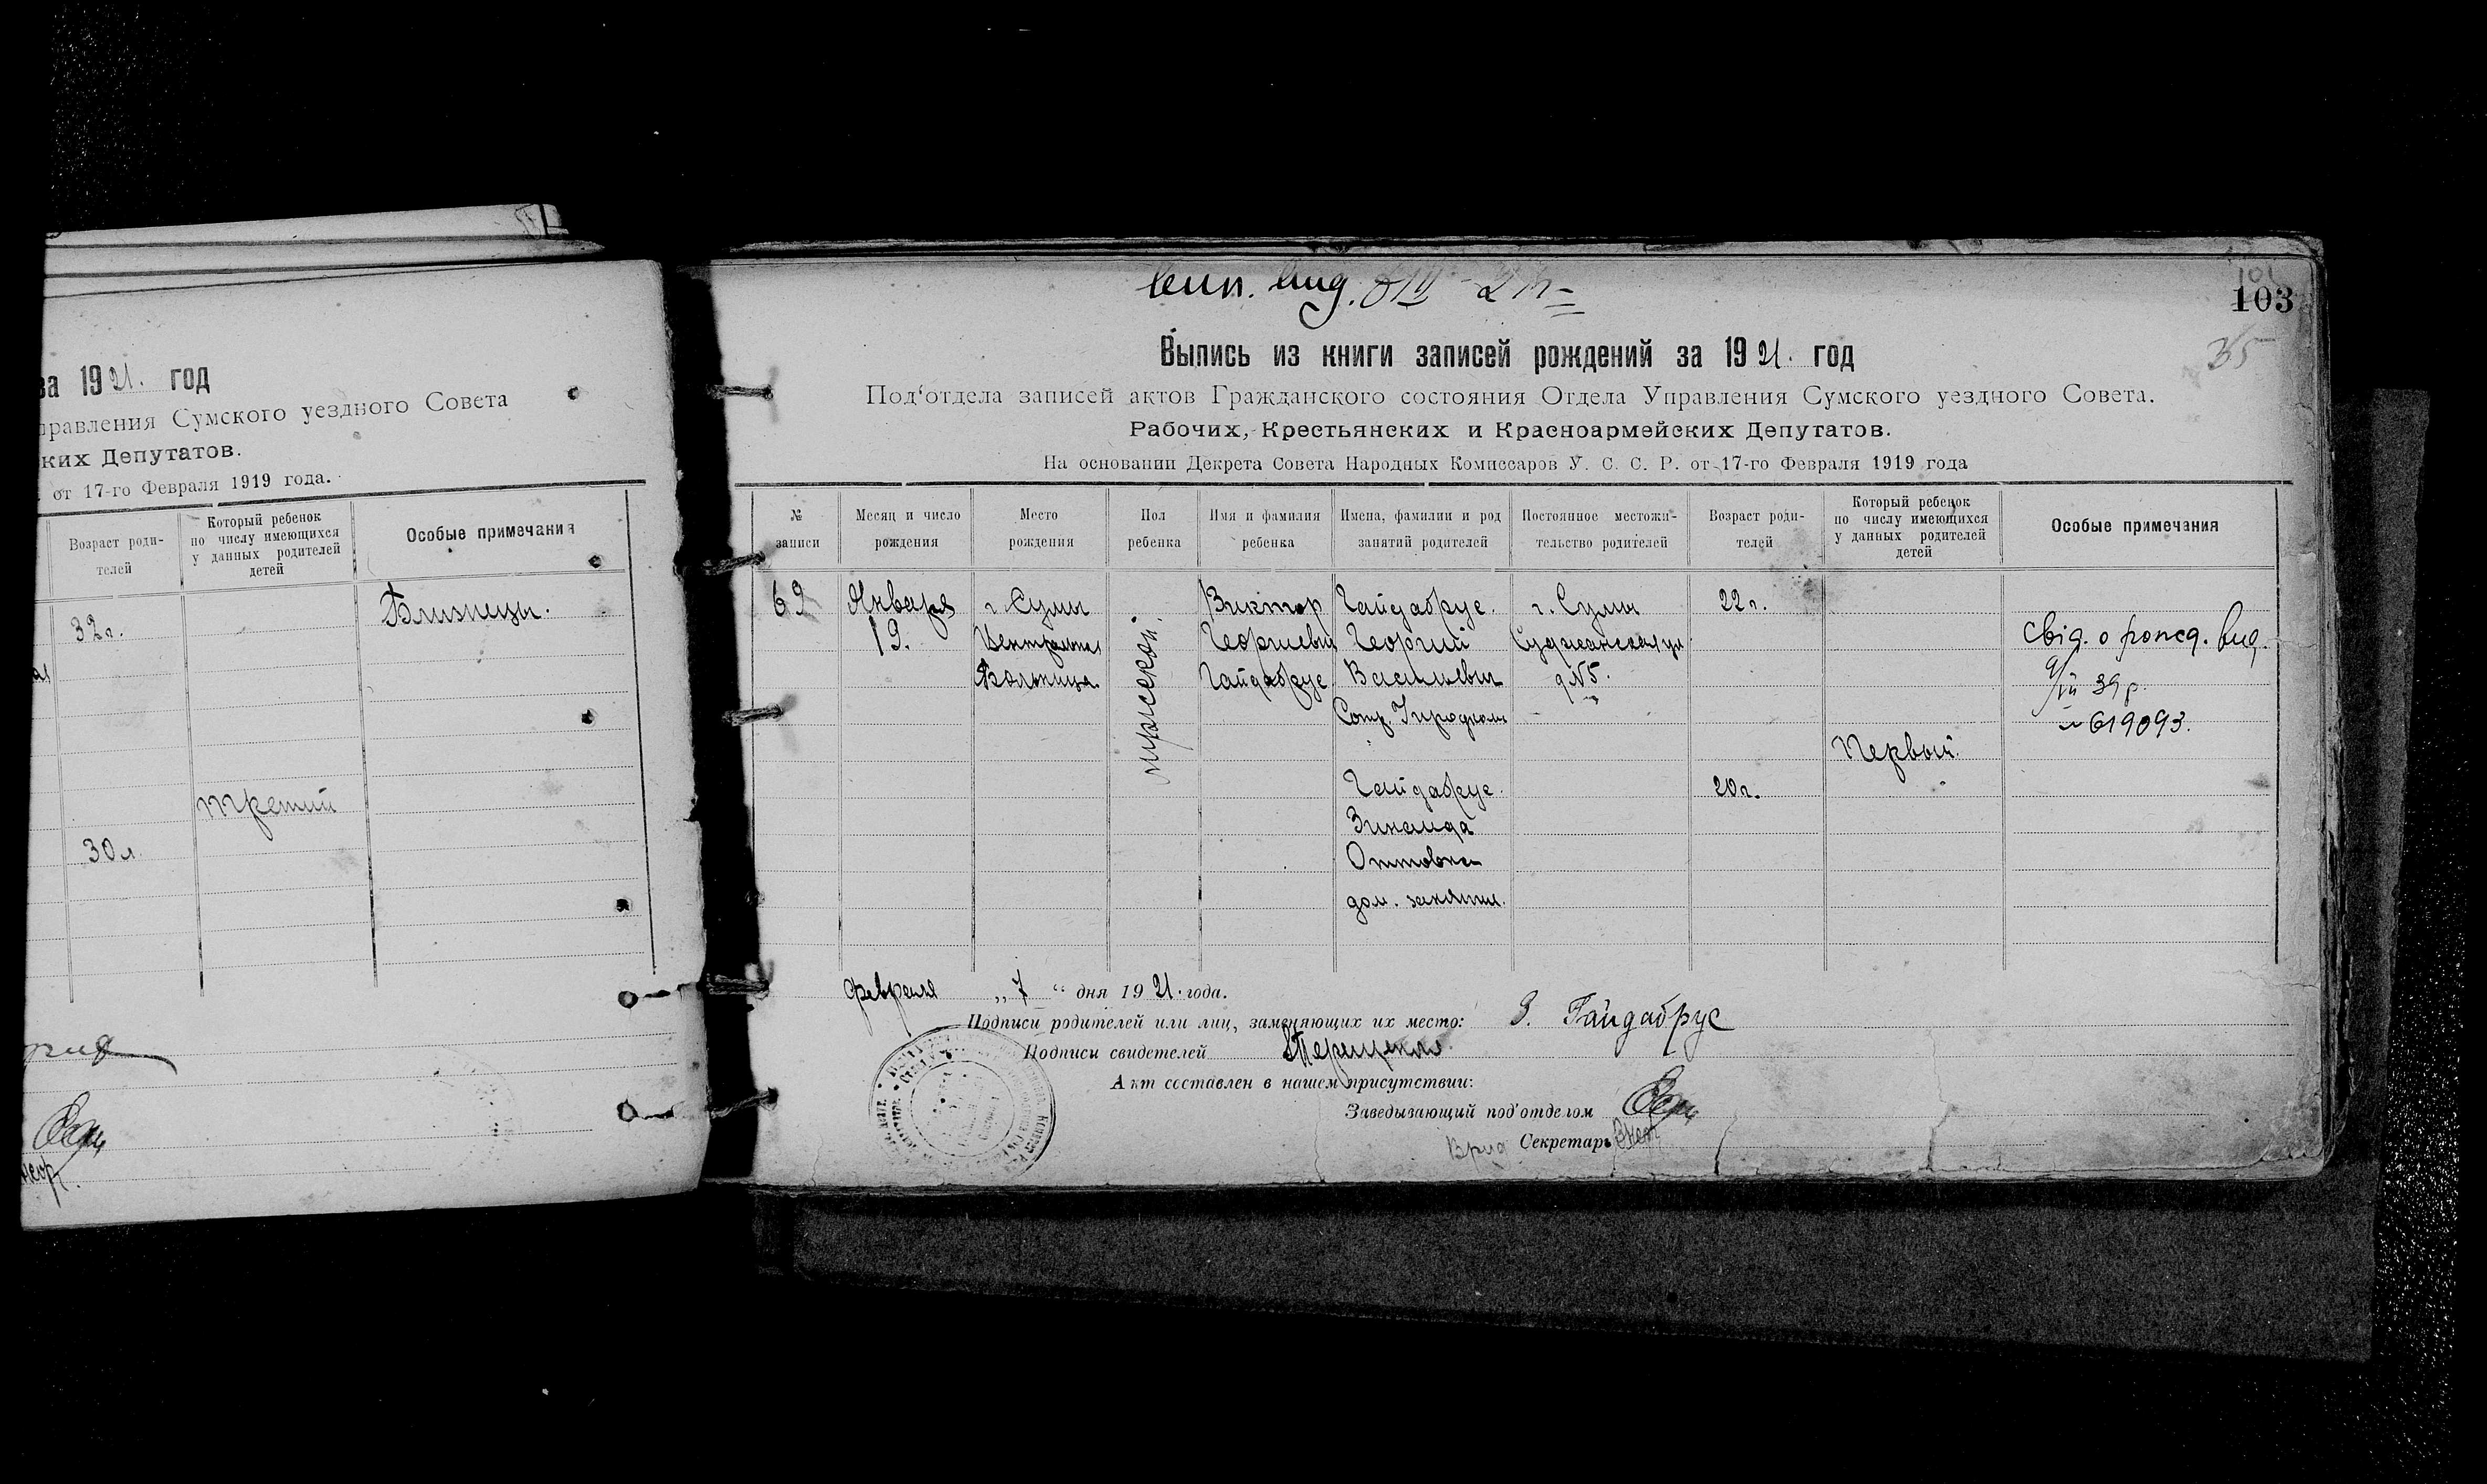 за 1921. год
правления Сумского уездного Совета
ких Депутатов.
. от 17-го Февраля 1919 года.
Возраст роди-
телей
Который ребенок
по числу имеющихся
у данных родителей
детей
Особые примечания
32 г.
Близнецы.
третий
30 л.
вип. вид.
101
103
35
Выпись из книги записей рождений за 1921. год
Под'отдела записей актов Гражданского состояния Отдела Управления Сумского уездного Совета.
Рабочих, Крестьянских и Красноармейских Депутатов.
На основании Декрета Совета Народных Комиссаров У. С. С. Р. от 17-го Февраля 1919 года
№
записи
Месяц и число
рождения
Место
рождения
Пол
ребенка
Имя и фамилия
ребенка
Имена, фамилии и род
занятий родителей
Постоянное местожи-
тельство родителей
Возраст роди-
телей
Который ребенок
по числу имеющихся
у данных родителей
детей
Особые примечания
69
Января
19.
г. Сумы
Центральная
Больница
мужской.
Виктор
Георгиевич
Гайдабрус
Гайдабрус.
Георгий
Васильевич
Сотр.
Гайдабрус.
Зинаида
Оттовна
дом. занятия.
г. Сумы
Суджанская ул
д №5.
22 г.
20 г.
Первый.
Свід. о рожд. вид.
39 р.
№ 619093.
февраля „7“ дня 1921. года.
Подписи родителей или лиц, заменяющих их место: З. Гайдабрус
Подписи свидетелей Терещенко
Акт составлен в нашем присутствии:
Заведывающий под'отделом
Врид Секретарь